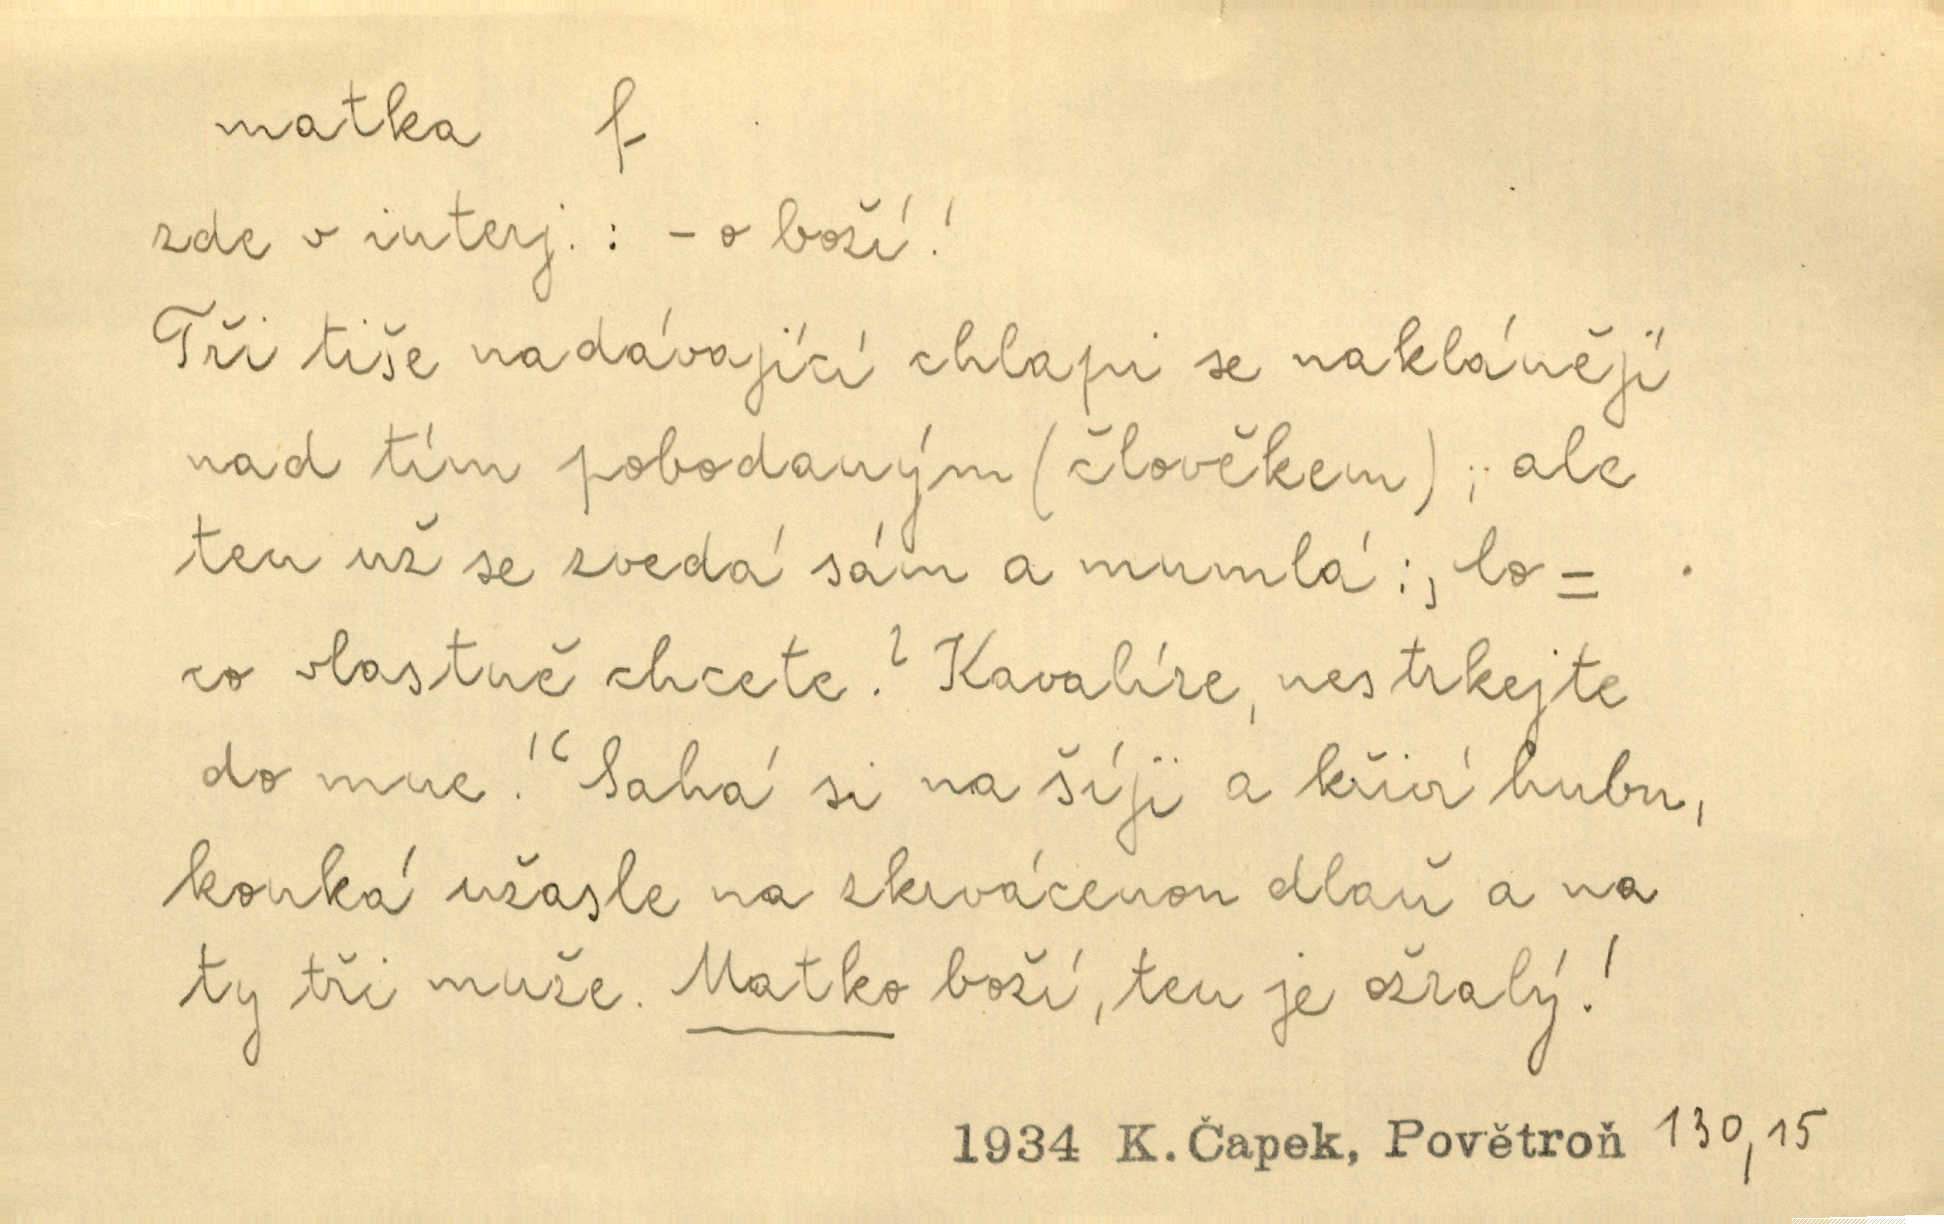 matka f
zde v interj.: -o boží!
Tři tiše nadávající chlapi se naklánějí
nad tím pobodaným (člověkem); ale
ten už se zvedá sám a mumlá: ‚Co=
co vlastně chcete? Kavalíre, nestrkejte
do mne!‘ Sahá si na šíji a křiví hubu,
kouká užasle na zkrvácenou dlaň a na
ty tři muže. Matko boží, ten je ožralý!
1934 K. Čapek, Povětroň 130,15